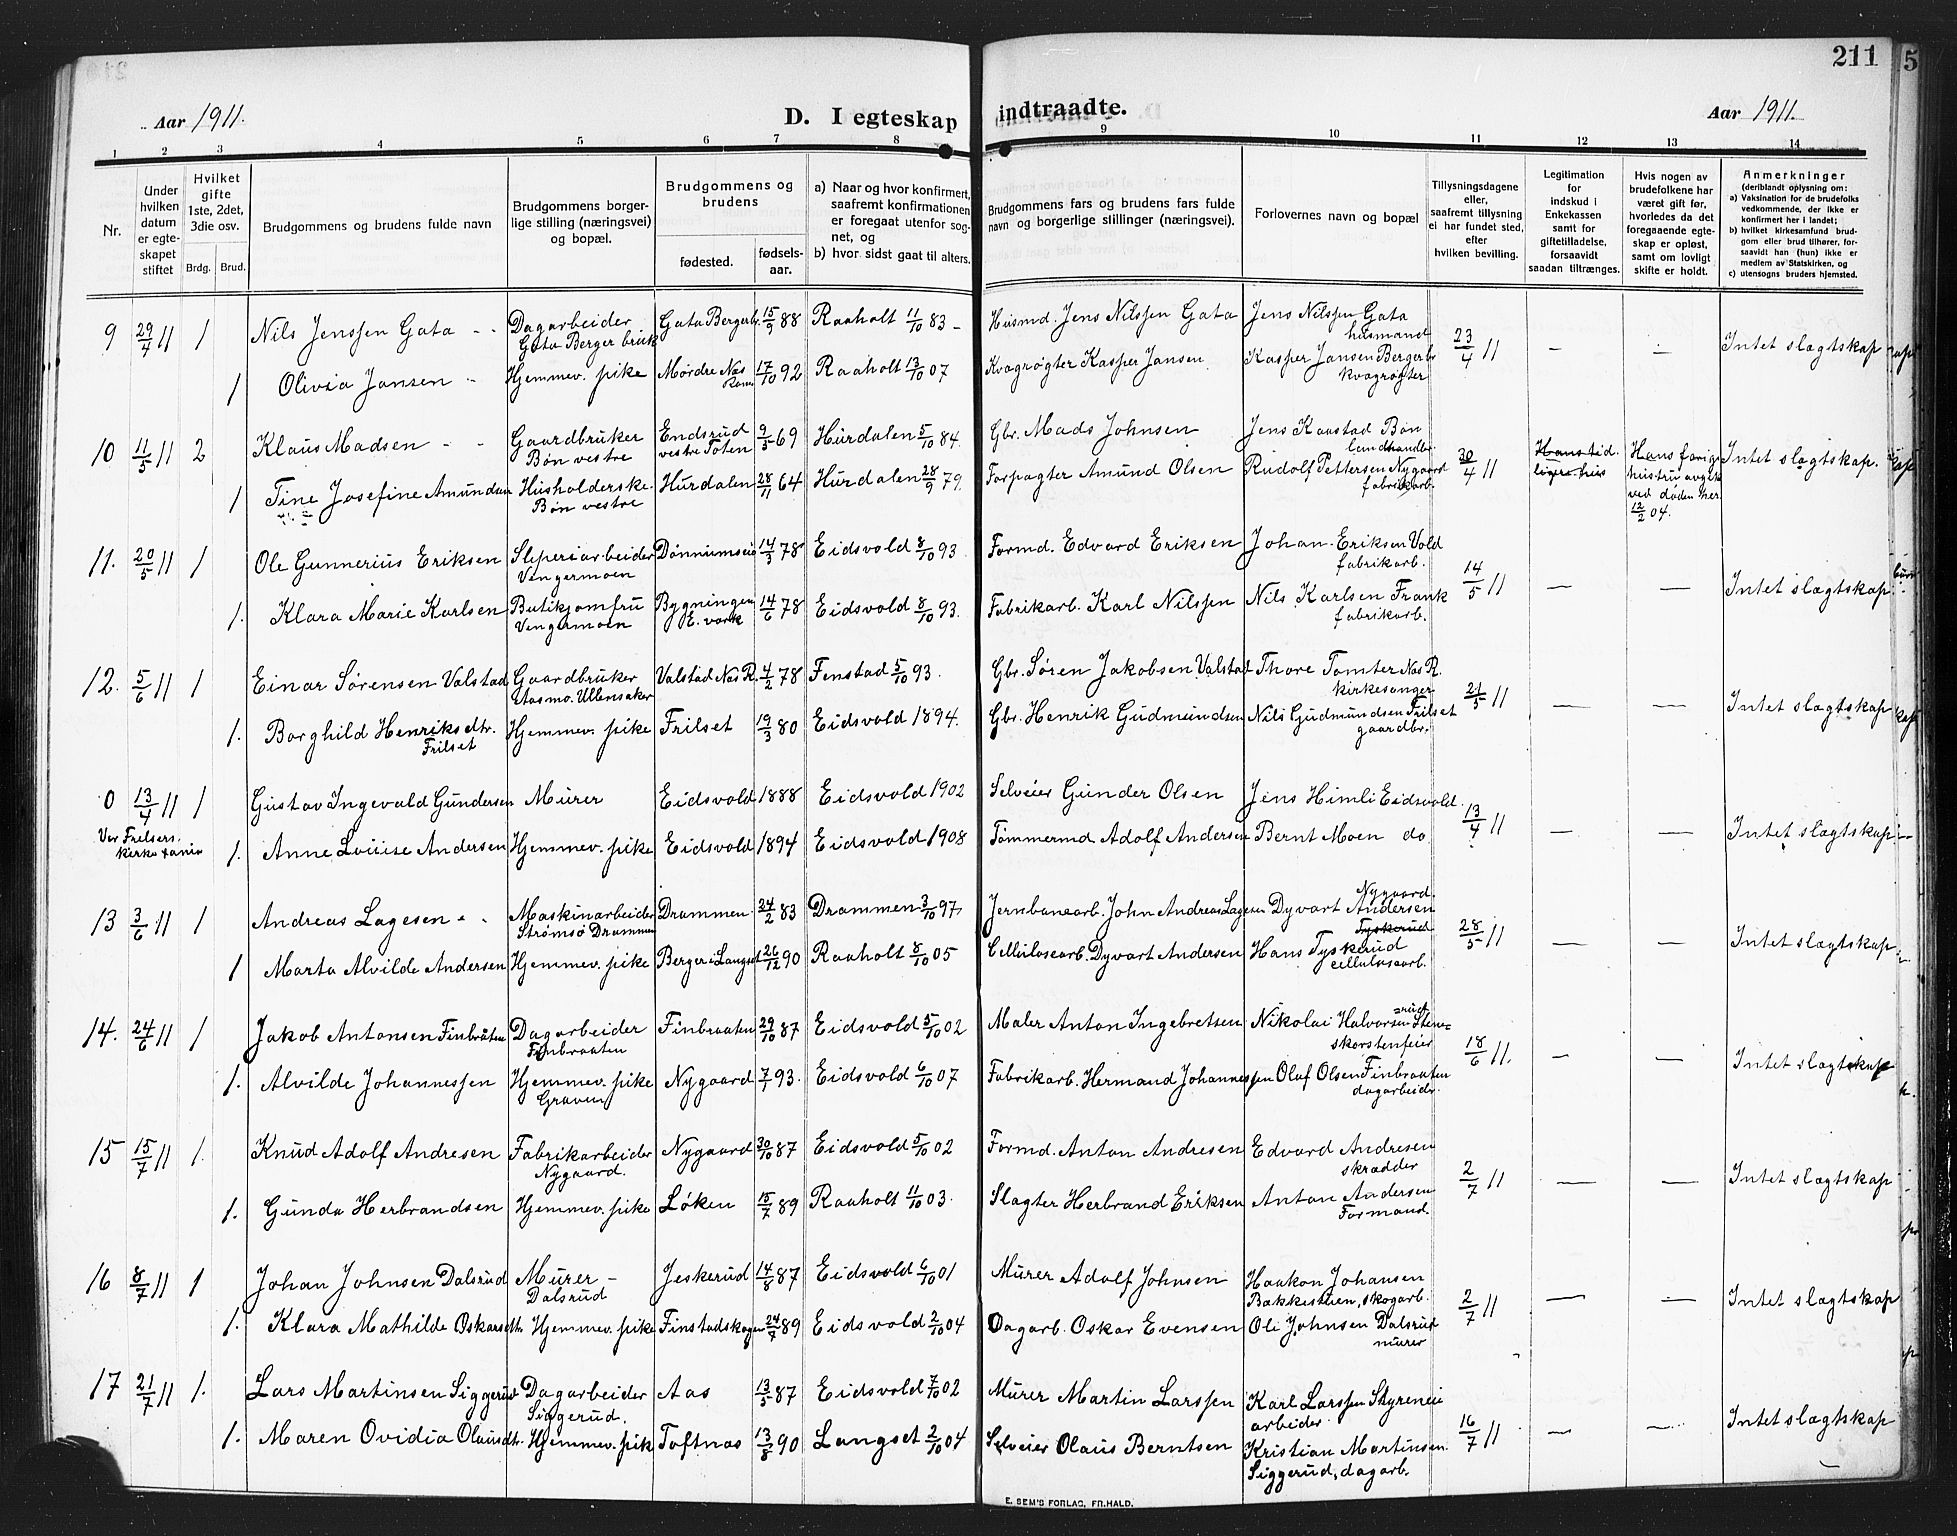 211
5
Aar 1911.
D. I egteskap indtraadte.
Aar 1911.
1 2 3 4 5 6 7 8 9 10 11 12 13 14
Nr.
Under hvilken datum er egteskapet stiftet
Hvilket gifte 1ste, 2det, 3die osv.
Brdg. Brud.
Brudgommens og brudens fulde navn
Brudgommens borgerlige stilling (næringsvei) og bopæl.
Brudgommens og brudens
fødested.
fødselsaar.
a) Naar og hvor konfirmert, saafremt konfirmationen er foregaat utenfor sognet, og
b) hvor sidst gaat til alters.
Brudgommens fars og brudens fars fulde navn og borgerlige stillinger (næringsvei).
Forlovernes navn og bopæl
Tillysningsdagene eller, saafremt tillysning ei har fundet sted, efter hvilken bevilling.
Legitimation for indskud i Enkekassen samt for giftetilladelse, forsaavidt saadan tiltrænges.
Hvis nogen av brudefolkene har været gift før, hvorledes da det foregaaende egteskap er opløst, samt om lovlig skifte er holdt.
Anmerkninger
(deriblandt oplysning om:
a) Vaksination for de brudefolks vedkommende, der ikke er konfirmert her i landet;
b) hvilket kirkesamfund brudgom eller brud tilhører, forsaavidt han (hun) ikke er medlem av Statskirken, og
c) utensogns bruders hjemsted.
9 29/4 11 1 Nils Jenssen Gata Dagarbeider Gata Berger bruk Gata Bergerbr. 15/9 88 Raaholt 11/10 83 Husmd. Jens Nilssen Gata Jens Nilssen Gata husmand 23/4 11 — — Intet slægtskap
1 Olivia Jansen Hjemmev. pike Mordre Nas Rom 17/10 92 Raaholt 13/10 07 Kvægrøgter Kasper Jansen Kasper Jansen Bergerbr kvægrøgter
10 11/5 11 2 Klaus Madsen Gaardbruker Bøn vestre Endsrud vestre Toten 9/5 69 Hurdalen 5/10 84 Gbr. Mads Johnsen Jens Kaastad Bøn landhandler 30/4 11 Hans tidligere hus Hans forige hustru avgik ved døden her 12/2 04. Intet slægtskap.
1 Tine Josefine Amundsen Husholderske Bøn vestre Hurdalen 28/11 64 Hurdalen 28/9 79. Forpagter Amund Olsen Rudolf Pettersen Nygaard fabrikarb.
11. 20/5 11 1 Ole Gunnerius Eriksen Sleperiarbeider Vengermoen Dønnumseie 14/3 78 Eidsvold 8/10 93. Formd. Edvard Eriksen Johan Eriksen Vold fabrikarb. 14/5 11 — — Intet slægtskap
1. Klara Marie Karlsen Butikjomfru Vengermoen Bygningen E. værk 14/6 78 Eidsvold 8/10 93. Fabrikarb. Karl Nilssen Nils Karlsen Frank fabrikarb.
12. 5/6 11 1 Einar Sørensen Valstad Gaardbruker Aasmo. Ullensaker Valstad Nas R. 4/2 78 Fenstad 5/10 93. Gbr. Søren Jakobsen Valstad Thore Tomter Nas R. kirkesanger 21/5 11 — — Intet slægtskap
1. Borghild Henriksdtr. Frilset Hjemmev. pike Frilset 19/3 80 Eidsvold 1894. Gbr. Henrik Gudmundsen Nils Gudmundsen Frilset gaardbr.
0 13/4 11 1 Gustav Ingevald Gundersen Murer Eidsvold 1888 Eidsvold 1902 Selveier Gunder Olsen Jens Himli Eidsvold. 13/4 11 — — Intet slægtskap
Vor Frelsers kirke 1. Anne Lovise Andersen Hjemmev. pike Eidsvold 1894 Eidsvold 1908 Tømmermd Adolf Andersen Bernt Moen do
13 3/6 11 1 Andreas Lagesen Maskinarbeider Strømsø Drammen Drammen 24/2 83 Drammen 3/10 97 Jernbanearb. John Andreas Lagesen Dyvart Andersen Nygaard. Tyskerud 28/5 11 — — Intet slægtskap
1 Marta Alvilde Andersen Hjemmev. pike Berger i Langset 26/12 90 Raaholt 8/10 05 Cellulosearb. Dyvart Andersen Hans Tyskerud cellulosearb.
14. 24/6 11 1 Jakob Antonsen Finbråten Dagarbeider Finbraaten Finbraaten 29/10 87 Eidsvold 5/10 02 Maler Anton Ingebretsen Nikolai Halvorsen Stensrud skorstenfeier 18/6 11. — — Intet slægtskap
1. Alvilde Johannessen Hjemmev. pike Graven Nygaard 7/7 93. Eidsvold 6/10 07 Fabrikarb. Hermand Johannessen Olaf Olsen Finbraaten dagarbeider
15 15/7 11 1. Knud Adolf Andresen Fabrikarbeider Nygaard. Nygaard 30/10 87 Eidsvold 5/10 02 Formd. Anton Andresen Edvard Andresen skrædder 2/7 11 — — Intet slægtskap
1. Gunda Herbrandsen Hjemmev. pike Løken 15/7 89 Raaholt 11/10 03. Slagter Herbrand Eriksen Anton Andersen Formand.
16 8/7 11 1 Johan Johnsen Dalsrud Murer Dalsrud Jeskerud 14/8 87 Eidsvold 6/10 01 Murer Adolf Johnsen Haakon Johansen Bækkestuen, skogarb. 2/7 11 — — Intet slægtskap
1. Klara Mathilde Oskarsdtr. Hjemmev. pike Finstadskogen 24/7 89 Eidsvold 2/10 04 Dagarb. Oskar Evensen Oli Johnsen Dalsrud murer
17 21/7 11 1. Lars Martinsen Siggerud Dagarbeider Siggerud. Aas 13/5 87 Eidsvold 7/10 02 Murer Martin Larssen Karl Larssen Styreneie arbeider 16/7 11 — — Intet slægtskap
1. Maren Ovidia Olausdtr. Hjemmev. pik Toftnas 13/8 90 Langset 2/10 04 Selveier Olaus Berntsen Kristian Martinsen Siggerud, dagarb.
E. SEM'S FORLAG, FR.HALD.